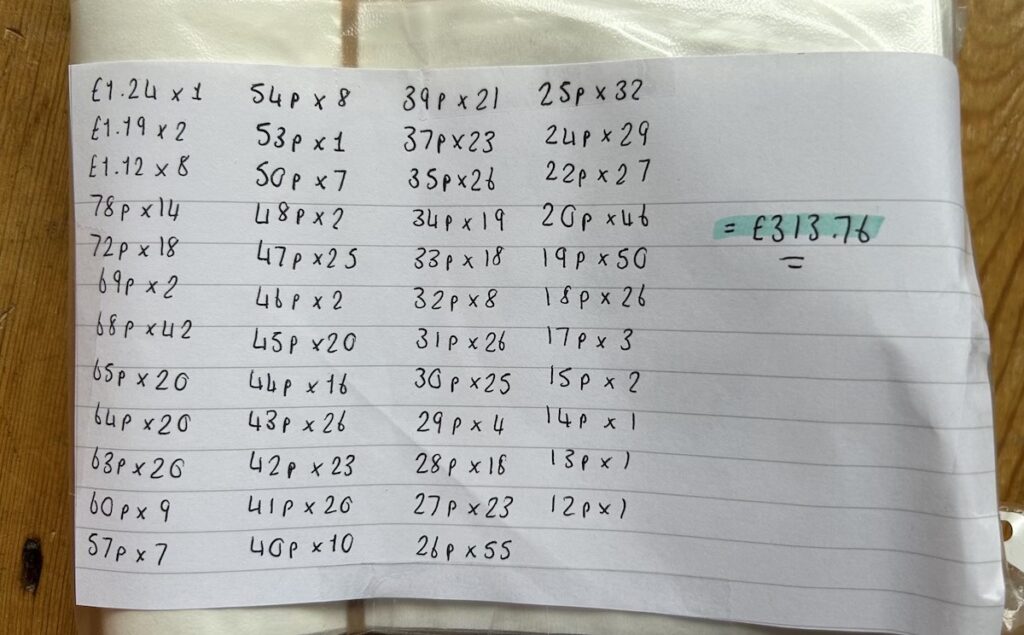 £1.24 x 1
£1.19 x 2
£1.12 x 8
78p x 14
72p x 18
69p x 2
68p x 42
65p x 20
64p x 20
63p x 20
60p x 9
57p x 7
54p x 8
53p x 1
50p x 7
48p x 2
47p x 25
46p x 2
45p x 20
44p x 16
43p x 26
42p x 23
41p x 20
40p x 10
39p x 21
37p x 23
35p x 26
34p x 19
33p x 18
32p x 8
31p x 26
30p x 25
29p x 4
28p x 18
27p x 23
26p x 55
25p x 32
24p x 29
22p x 27
20p x 46
19p x 50
18p x 26
17p x 3
15p x 2
14p x 1
13p x 1
12p x 1
= £313.76